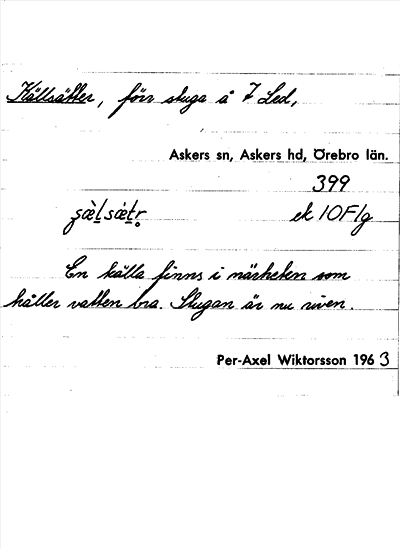 Källsätter, förr stuga å 7 Led,
Askers sn, Askers hd, Örebro län.
399
ek 10F1g
En källa finns i närheten som
håller vatten bra. Stugan är nu riven.
Per-Axel Wiktorsson 1963